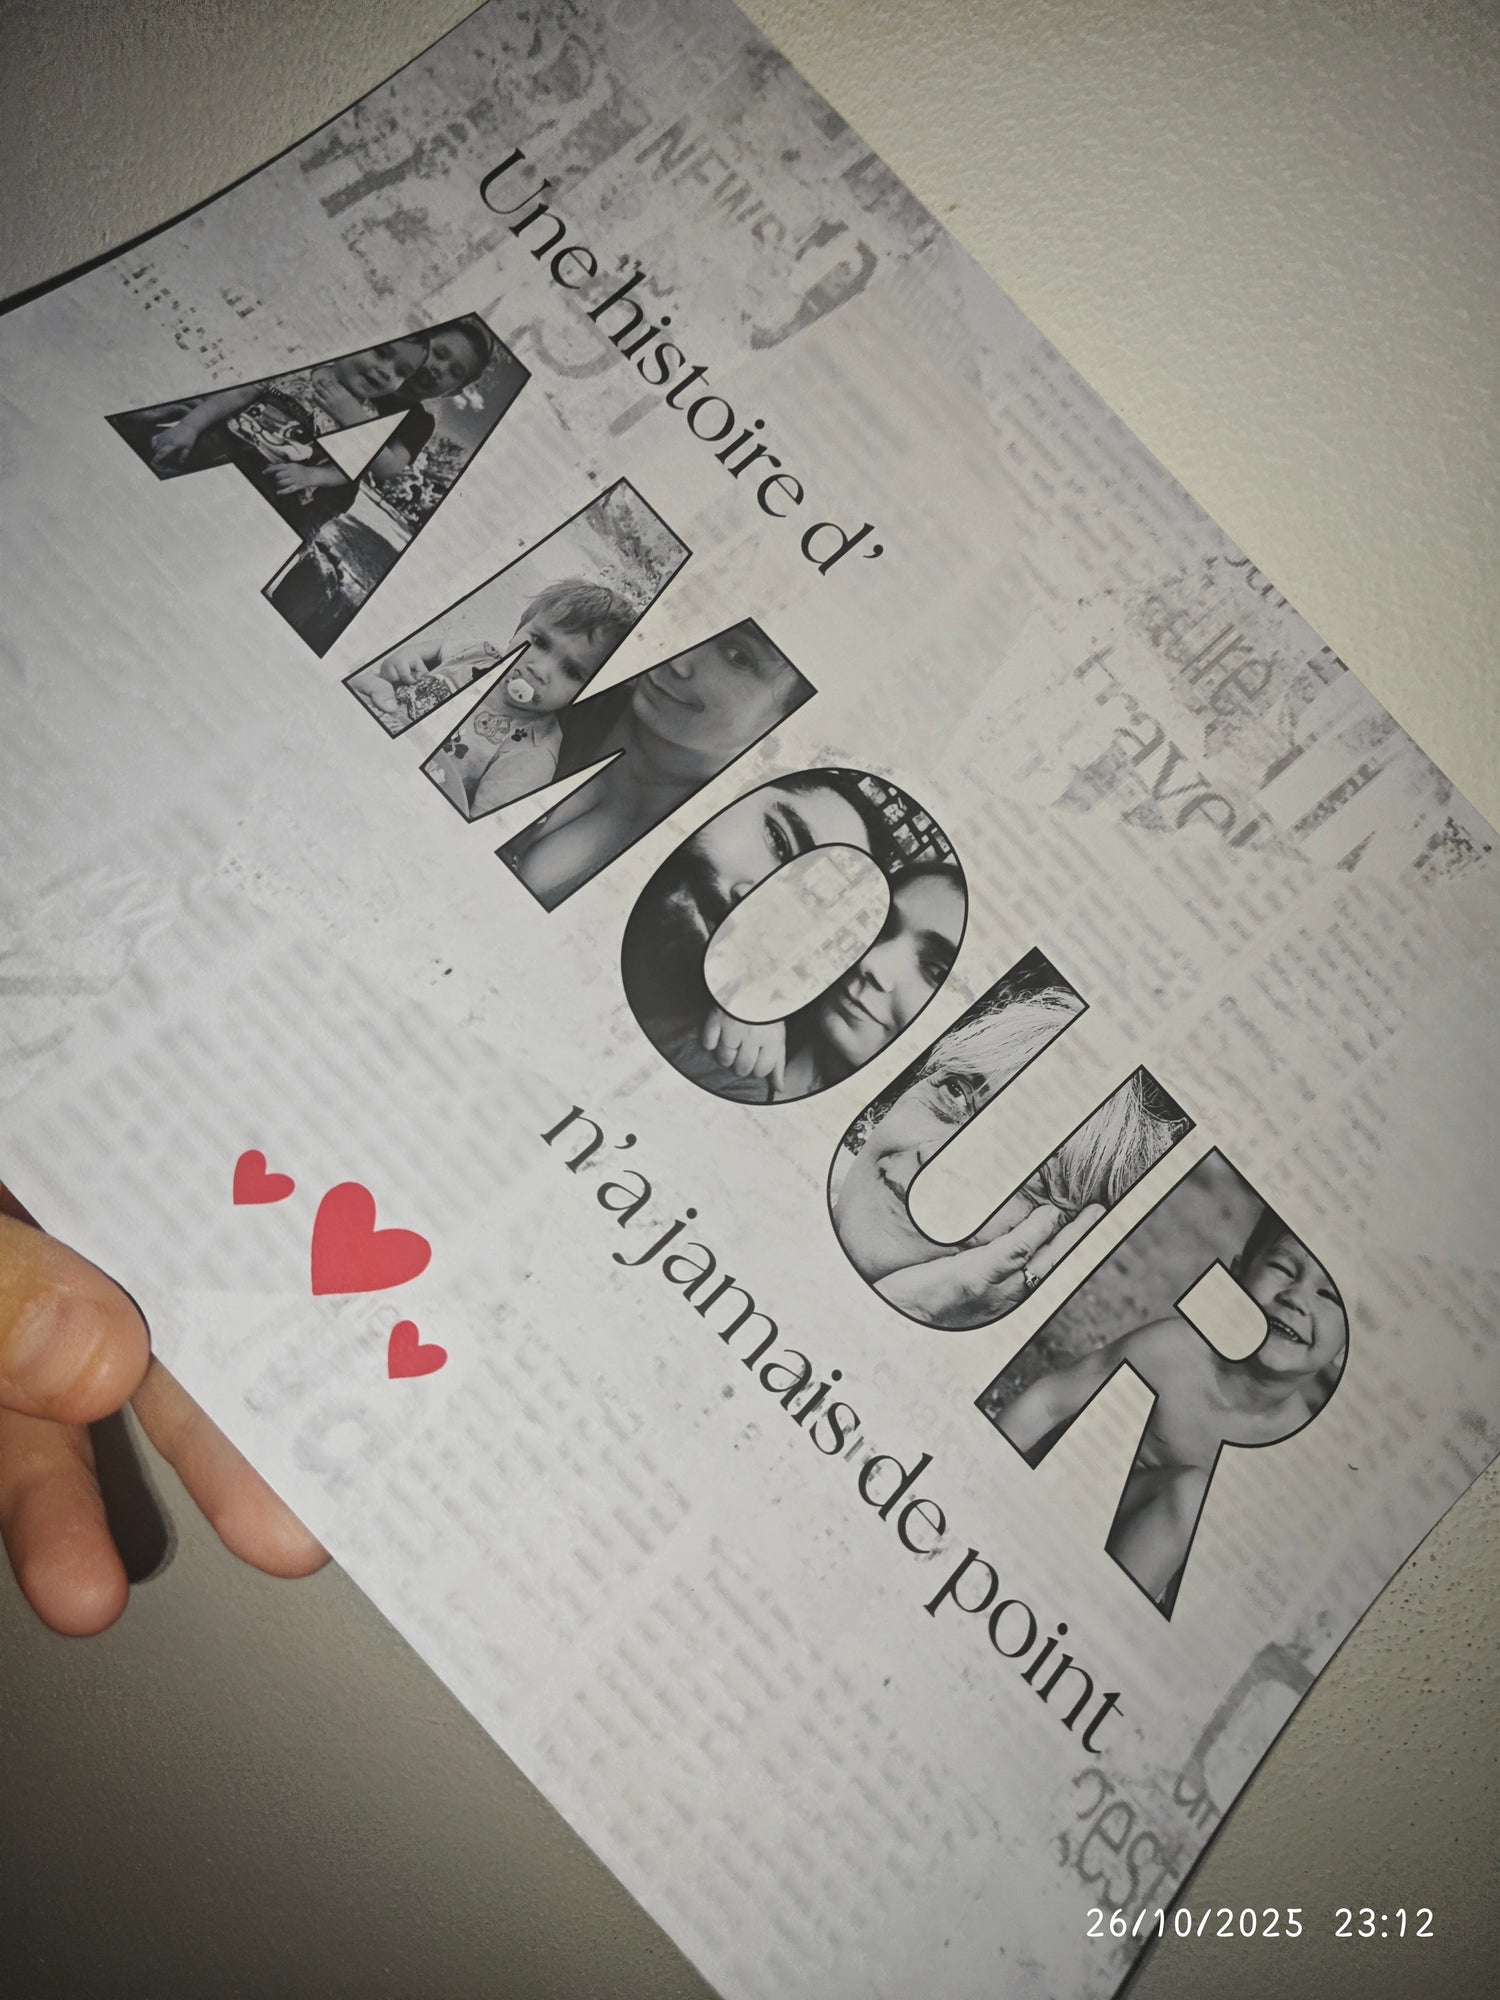 Une histoire d'
AMOUR
n'a jamais de point
NEWS
Travel
26/10/2025 23:12